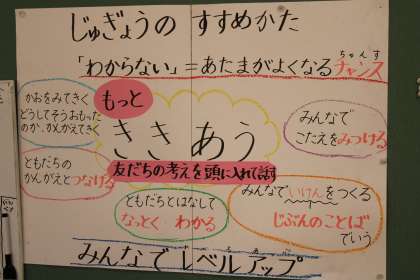 じゅぎょうの すすめかた
「わからない」=あたまがよくなるチャンス
ちゃんす
かおをみてきく
どうしてそうおもった
のか、かんがえてきく
もっと
ききあう
友だちの考えを頭に入れて話す
みんなで
こたえをみつける
ともだちの
かんがえとつなげる
ともだちとはなして
なっとく わかる
みんなでいけんをつくる
じぶんのことば
でいう
みんなでレベルアップ